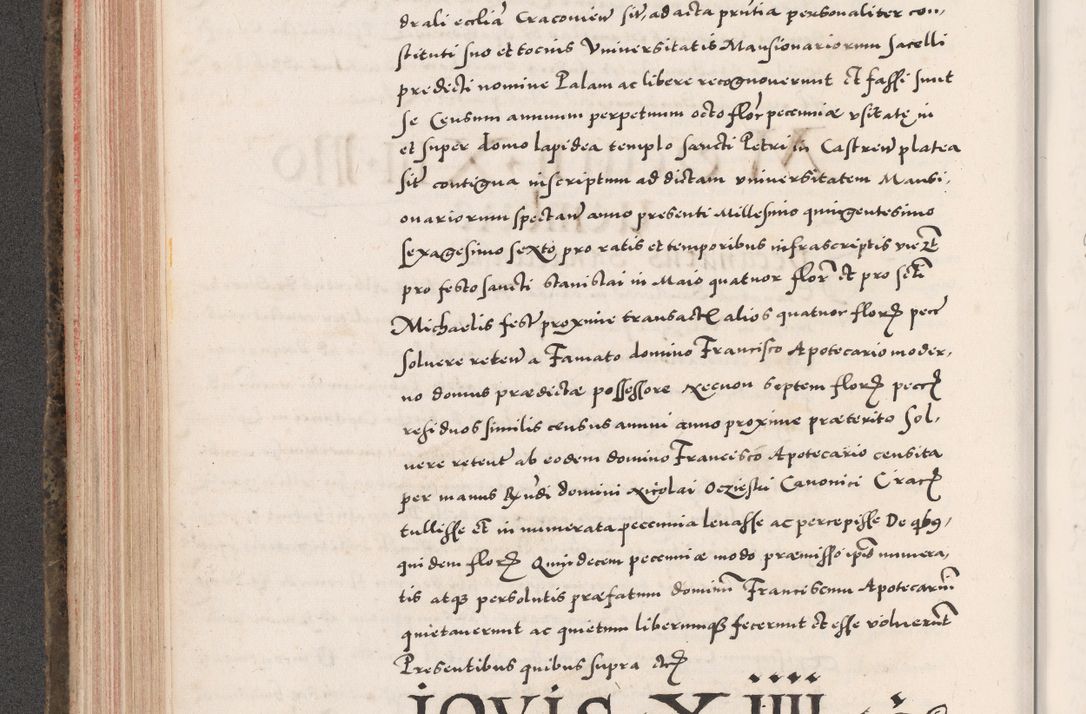 drali ecclia Cracovien sit, ad acta prntia personaliter con,
stituti suo et tocius Universitatis Mansionariorum sacelli
predicti nomine Palam ac libere recognoverunt Et fassi sunt
se Censum annuum perpetuum octo flor pecuniæ usitate in
et super domo lapidea templo sancti Petri in Castren platea
sit contigua inscriptum ad dictam universitatem Mansi,
onariorum spectan anno presenti Millesimo quingentesimo
sexagesimo sexto pro ratis et temporibus infrascriptis
pro festo sancti Stanislai in Maio quatuor flor Et pro
Michaelis fest proxime transact alios quatuor flor pecc
solvere reten a Famato domino Francisco Apotecario moder,
no domus prædictæ possessore Necnon septem flor pecc
residuos similis census annui anno proxime præterito sol,
vere retent ab eodem domino Francisco Apotecario censita
per manus Rndi domini Nicolai Canonici Crac
tullisse Et in numerata pecunia levasse ac percepisse De qbus,
qui dem flor Quindecem pecuniæ modo præmisso ipsis numera,
tis atque persolutis præfatum dominum Franciscum Apotecarium
quietaverunt ac quietum liberumque fecerunt Et esse voluerunt
Presentibus quibus supra etc
IOVIS X IIII